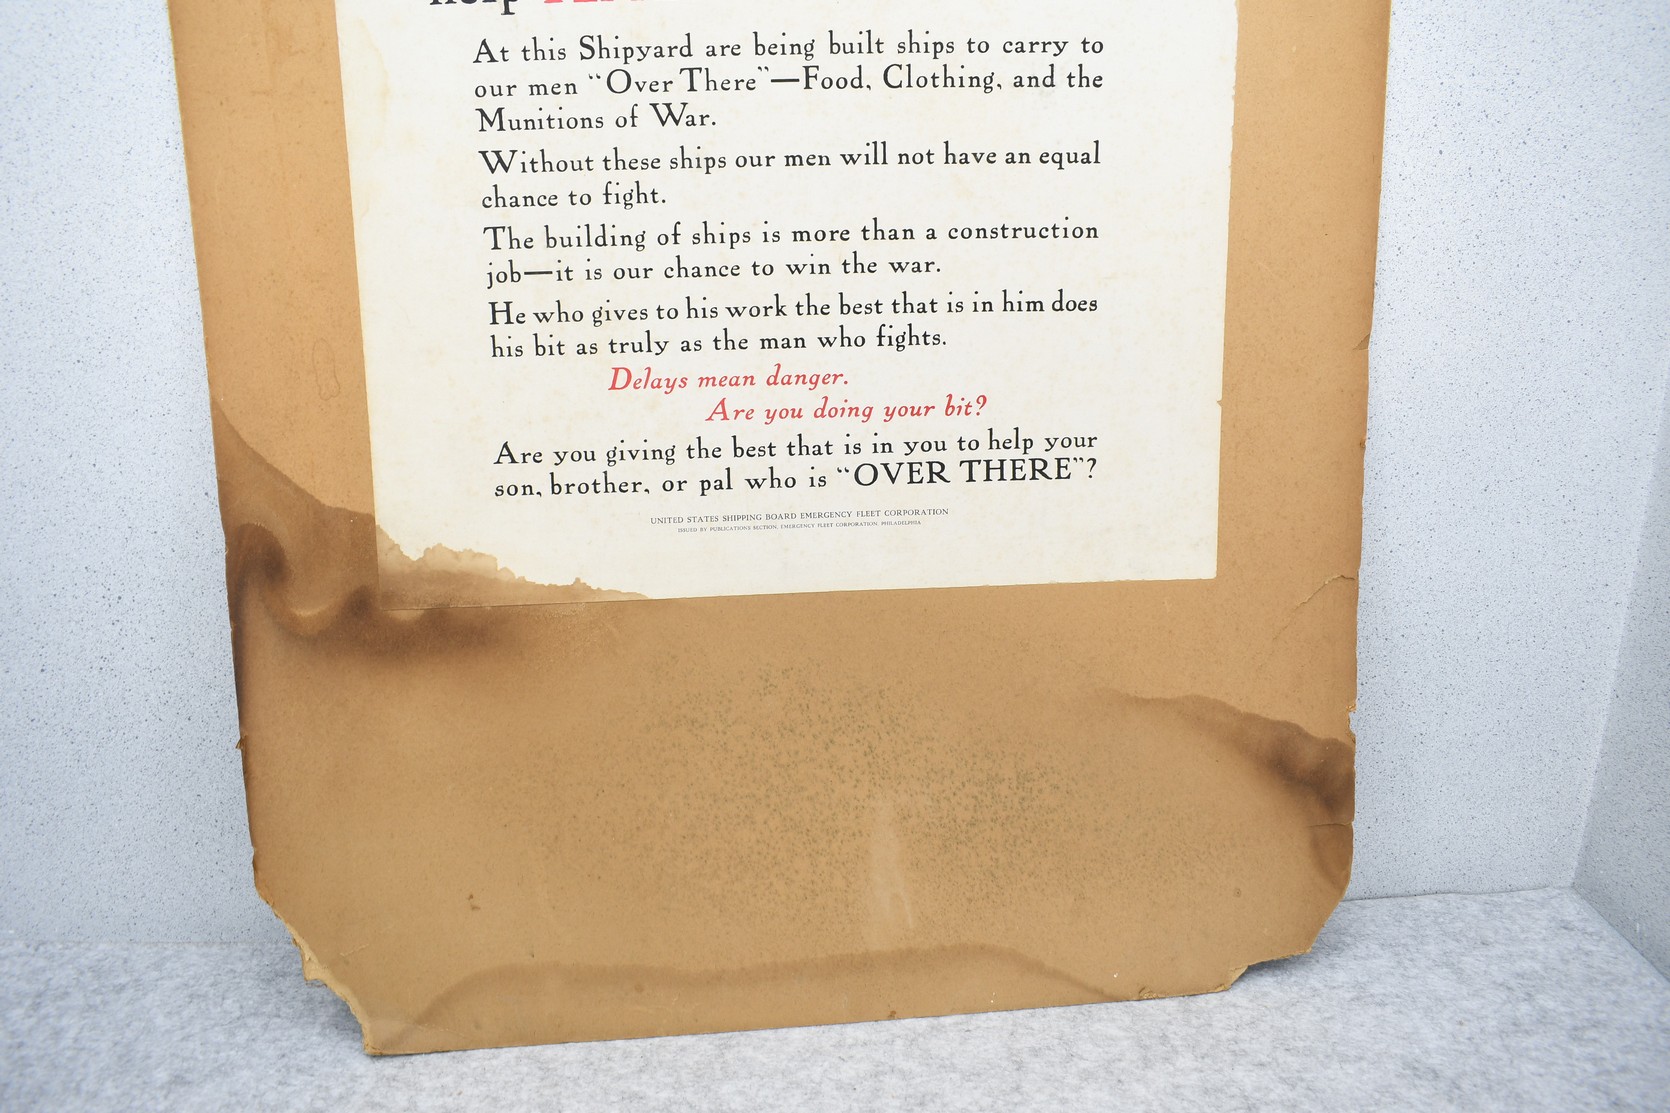 help
At this Shipyard are being built ships to carry to
our men “Over There”—Food, Clothing, and the
Munitions of War.
Without these ships our men will not have an equal
chance to fight.
The building of ships is more than a construction
job—it is our chance to win the war.
He who gives to his work the best that is in him does
his bit as truly as the man who fights.
Delays mean danger.
Are you doing your bit?
Are you giving the best that is in you to help your
son, brother, or pal who is “OVER THERE”?
UNITED STATES SHIPPING BOARD EMERGENCY FLEET CORPORATION
ISSUED BY PUBLICATIONS SECTION, EMERGENCY FLEET CORPORATION, PHILADELPHIA